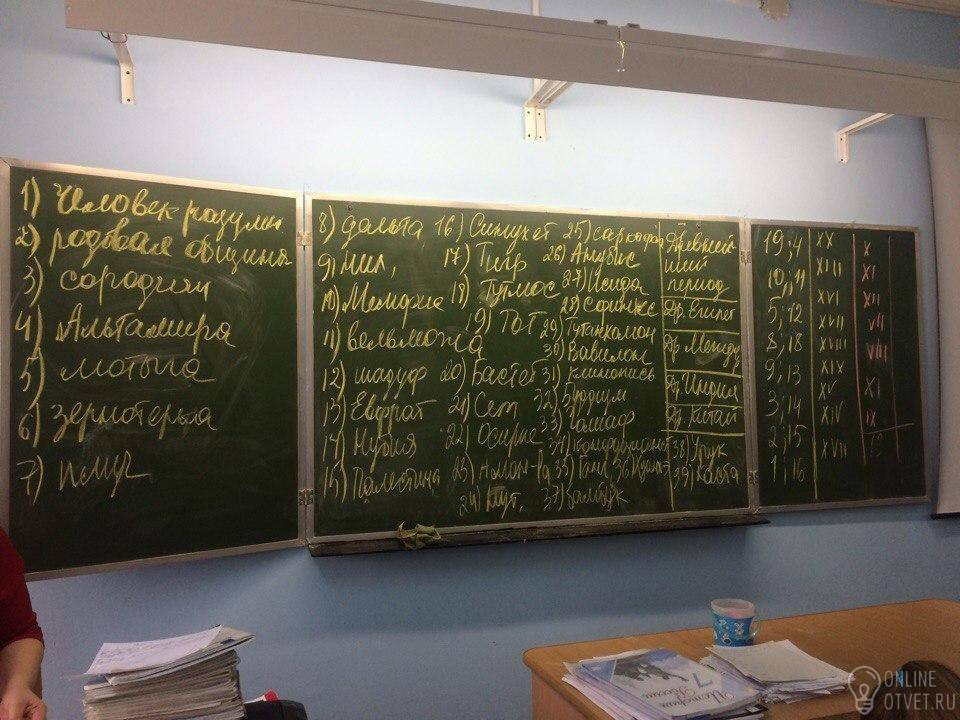 1) Человек разумн.
2) родовая община
3) сородичи
4) Альтамира
5) мотыга
6) зернотерка
7)
8) дельта,
9) Нил,
10) Мемфис
11) вельможа
12) шадуф
13) Евфрат
14) Нубия
15) Палестина
16) Синухет
17) Тигр
18) Тутмос
19) Тот
20) Бастет
21) Сет
22) Осирис
23) Амон-Ра
24)
25) саркофаг
26) Анубис
27) Исида
28) Сфинкс
29) Тутанхамон
30) Вавилон
31) клинопись
32)
33)
34)
35) Ганг 36)
37) бамбук
Древней
ший
период
Др. Египет
Др. Между
Др. Индия
Др. Китай
38) Урук
39) каста
19; 4
10; 11
5; 12
8; 18
9; 13
3; 14
2; 15
1; 16
XX
XVIII
XVI
XVII
XVII
XIX
XV
XIV
XVII
X
XI
XII
VII
VIII
XI
IX
История
России
7
ONLINE
OTVET.RU